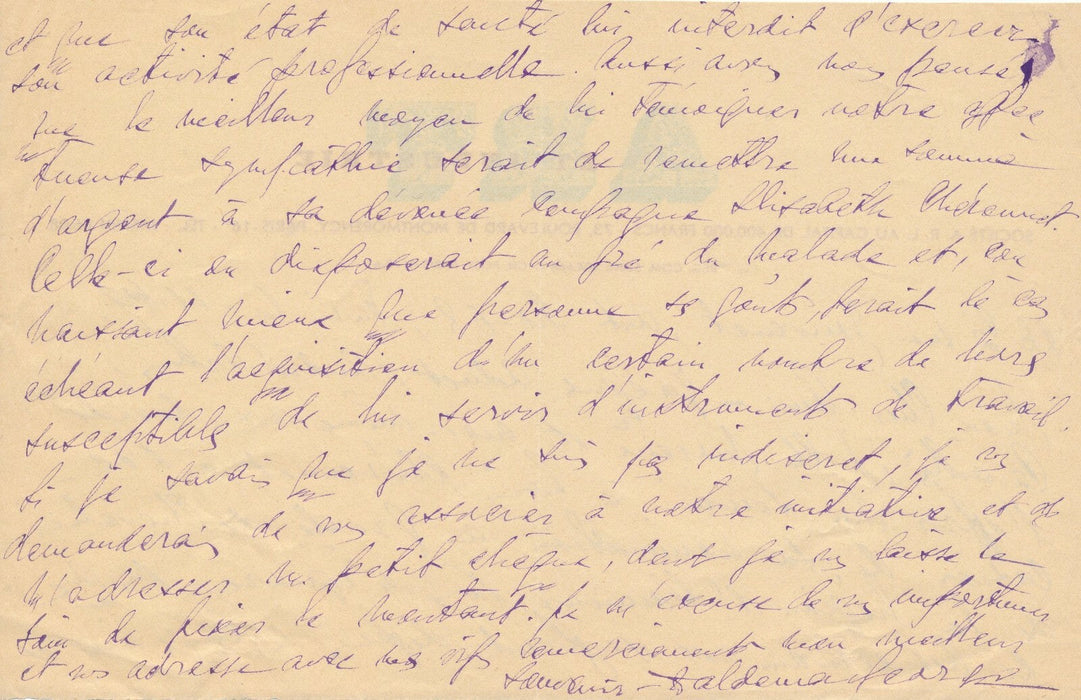 et que son état de santé lui interdit d'exercer
son activité professionnelle. Aussi avons nous pensé
que le meilleur moyen de lui témoigner notre affec
tueuse sympathie serait de remettre une somme
d'argent à sa dévouée compagne Elisabeth
Celle-ci en disposerait au gré du malade et, con
naissant mieux que personne ses goûts, ferait le cas
échéant l'acquisition d'un certain nombre de livres
susceptibles de lui servir d'instruments de travail.
Si je savais que je ne suis pas indiscret, je vs
demanderais de vs associer à notre initiative et de
m'adresser un petit chèque, dont je vs laisse le
soin de fixer le montant. Je m'excuse de vs importuner
et vs adresse avec mes vifs remerciements mon meilleur
souvenir - Waldemar George